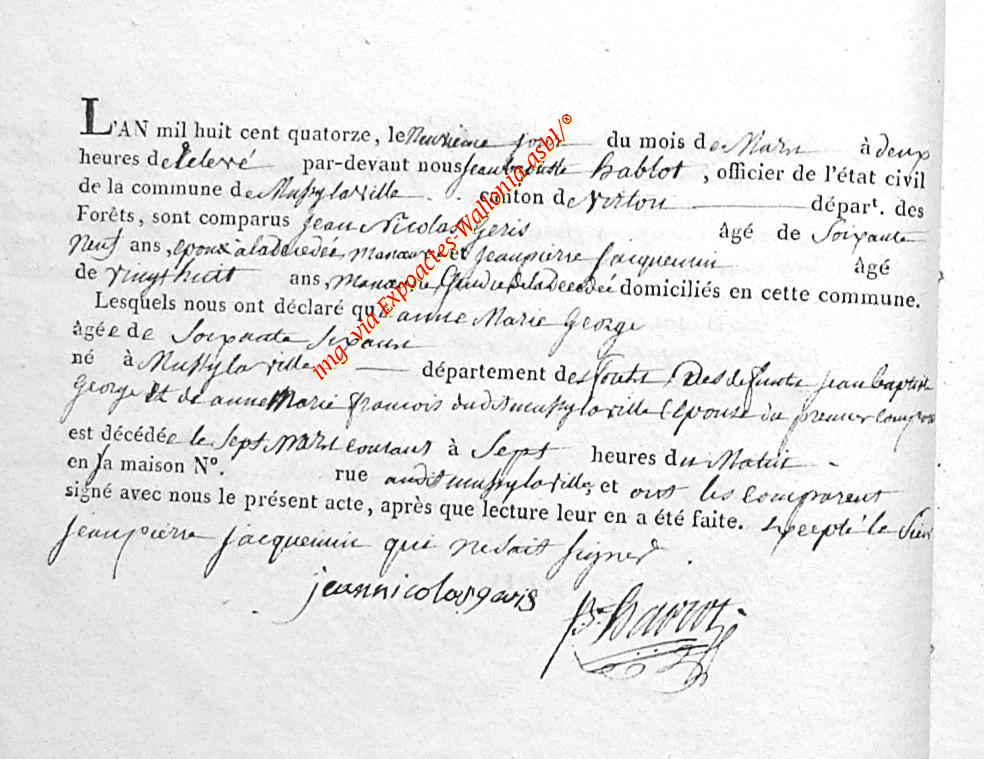 L'AN mil huit cent quatorze, le neuvieme jour du mois de Mars à deux
heures de relevé par-devant nous jean baptiste hablot, officier de l'état civil
de la commune de Mussylaville canton de virton départ. des
Forêts, sont comparus jean Nicolas Geris âgé de Soixante
Neuf ans, epoux a la decedée, manœuvre et jeanpierre jacquemin âgé
de vingt huit ans, manœuvre, Gendre de la decedée domiciliés en cette commune.
Lesquels nous ont déclaré que anne Marie George
âgée de Soixante Six ans
né à Mussylaville département des forêts, des defunts jean baptiste
George et de anne Marie francois dudit mussylaville epouse du premier
est décédée le Sept Mars courant à Sept heures du Matin
en sa maison N°. rue audit mussylaville, et ont les comparent
signé avec nous le présent acte, après que lecture leur en a été faite. Excepté le Sieur
jeanpierre jacquemin qui ne sait signer
jeannicolas garis
img- via Expoactes-Wallonia.asbl/®